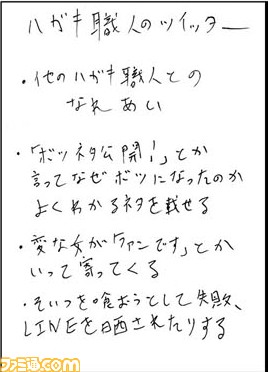 ハガキ職人のツイッター
・他のハガキ職人との
なれあい
・「ボツネタ公開！」とか
言ってなぜボツになったのか
よくわかるネタを載せる
・変な女が「ファンです」とか
いって寄ってくる
・そいつを喰おうとして失敗、
LINEを晒されたりする
ファミ通.com